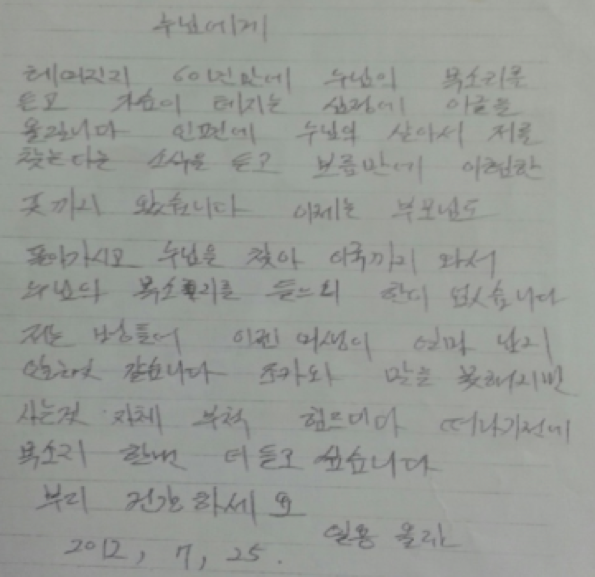 누님에게
헤여진지 60여년만에 누님의 목소리를
듣고 가슴이 터지는 심정에 이글을
올립니다 인편에 누님의 살아서 저를
찾는다는 소식을 듣고 보름만에 이험한
곳까지 왔습니다 이제는 부모님도
돌아가시고 누님을 찾아 이국까지 와서
누님의 목소리를 들으니 한이 없습니다
저는 병들어 이젠 여생이 얼마 남지
않은것 같습니다 조카와 말은 못해지만
사는것 자체 부척 힘드데다 떠나기전에
목소리 한번 더 듣고 싶습니다
부디 건강하세요
일용 올림
2012, 7, 25.